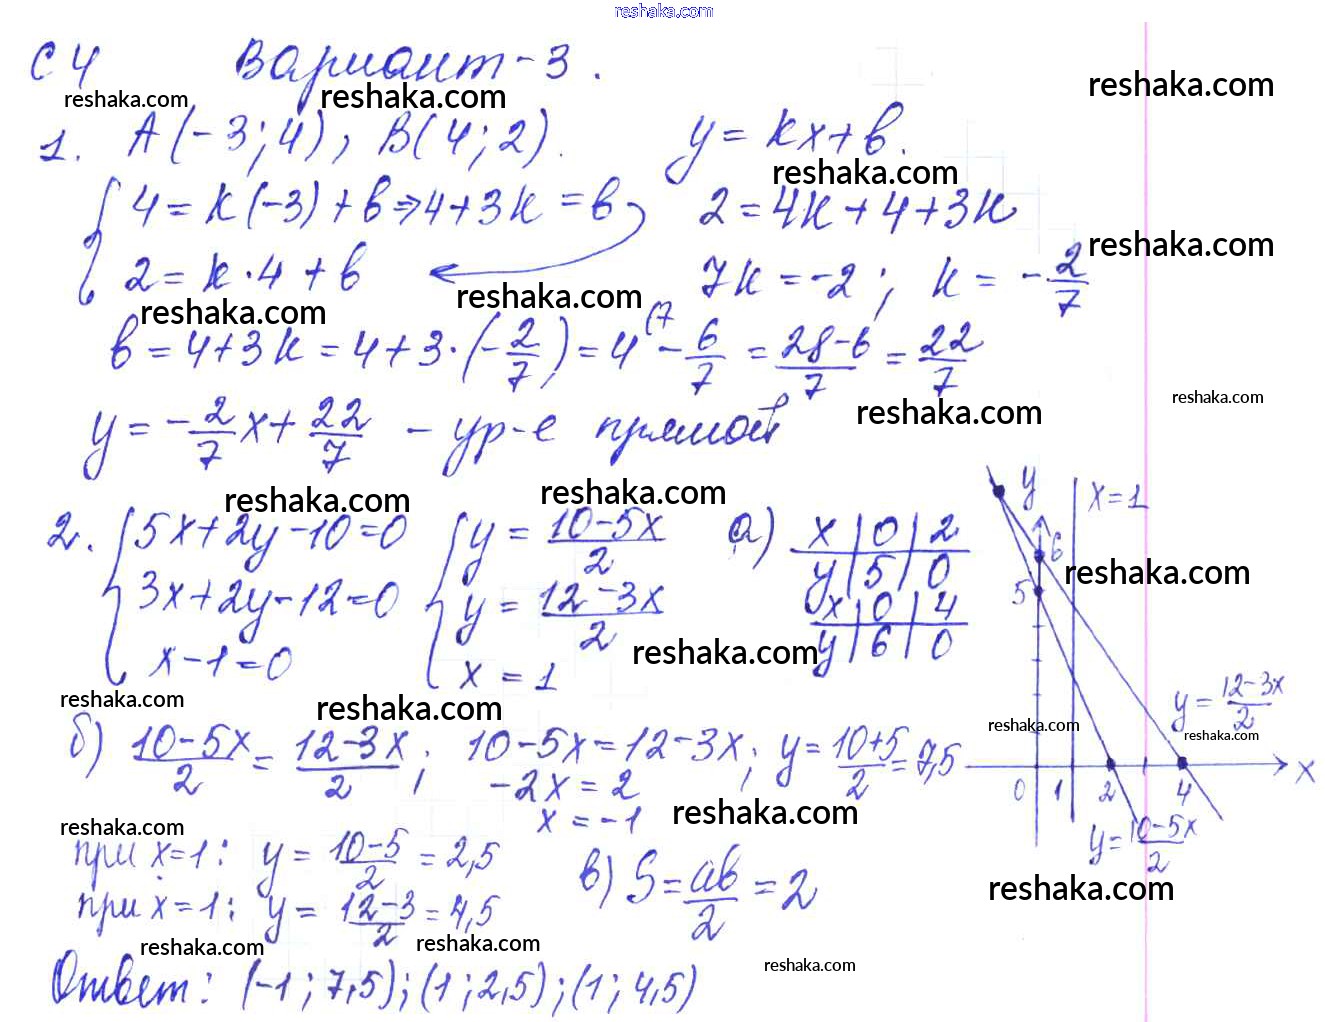 reshaka.com
С 4 Вариант-3.
reshaka.com reshaka.com reshaka.com
1. A(-3;4), B(4;2). y = kx+b.
reshaka.com
{ 4 = k(-3)+b ⇒ 4+3k = b 2 = 4k+4+3k
reshaka.com
2 = k·4+b 7k = -2; k = -2/7
reshaka.com reshaka.com
b = 4+3k = 4+3·(-2/7) = 4(7 - 6/7 = 28-6/7 = 22/7
reshaka.com reshaka.com
y = -2/7x+22/7 - ур-е прямой
reshaka.com reshaka.com
2. { 5x+2y-10=0 { y = 10-5x/2 а) x | 0 | 2
y | 5 | 0
3x+2y-12=0 y = 12-3x/2 x | 0 | 4
y | 6 | 0
x-1=0 x = 1
reshaka.com reshaka.com reshaka.com
y x=1
6
reshaka.com
5
y = 12-3x/2
reshaka.com reshaka.com
0 1 2 4 x
y = 10-5x/2
reshaka.com
б) 10-5x/2 = 12-3x/2; 10-5x=12-3x; y = 10+5/2 = 7,5
-2x = 2
x = -1
reshaka.com reshaka.com
при x=1: y = 10-5/2 = 2,5 в) S = ab/2 = 2
при x=1: y = 12-3/2 = 4,5
reshaka.com reshaka.com reshaka.com
Ответ: (-1; 7,5); (1; 2,5); (1; 4,5)